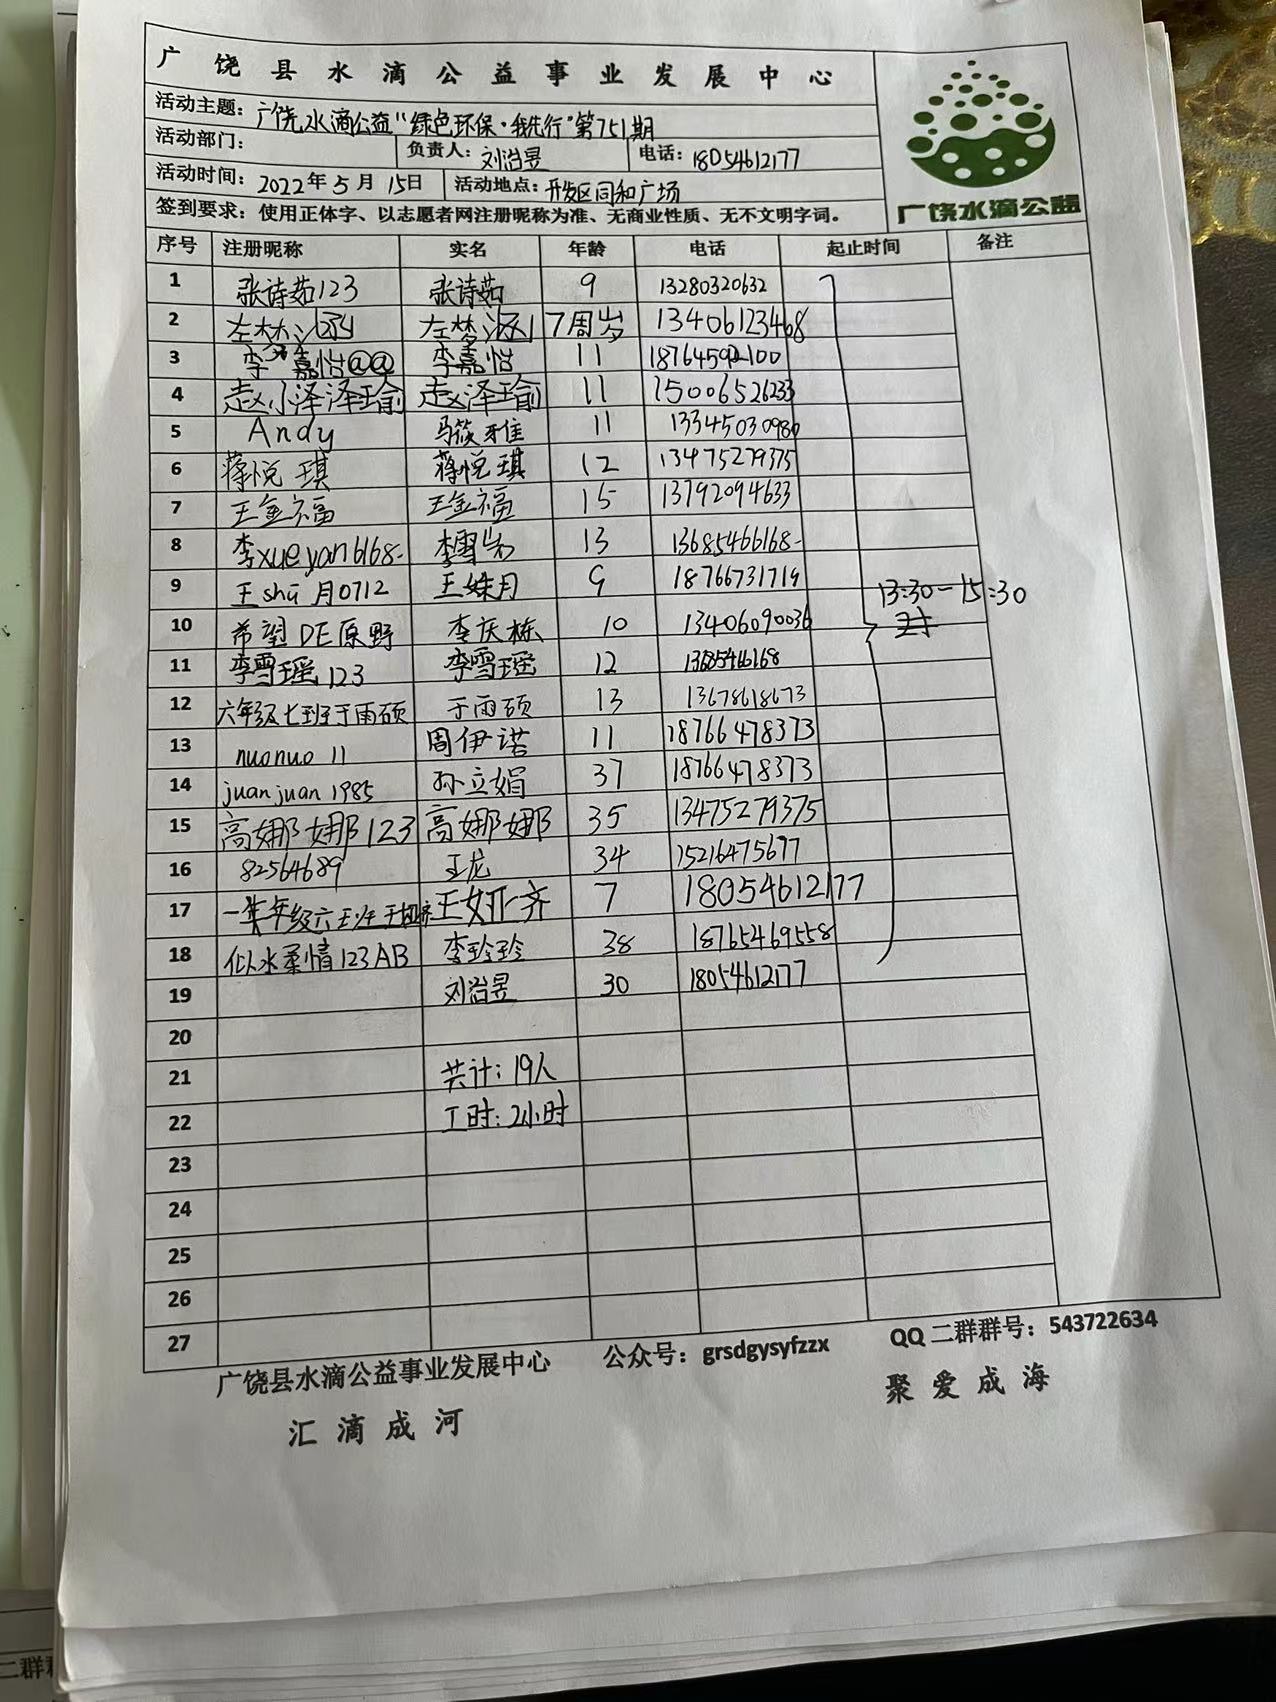 广饶县水滴公益事业发展中心
活动主题：广饶水滴公益“绿色环保·我先行”第751期
活动部门： 负责人：刘治昱 电话：18054612177
活动时间：2022年5月15日 活动地点：开发区同和广场
签到要求：使用正体字、以志愿者网注册昵称为准、无商业性质、无不文明字词。
广饶水滴公益
序号 注册昵称 实名 年龄 电话 起止时间 备注
1 张诗茹123 张诗茹 9 13280320632
2 左梦涵 左梦涵 7周岁 13406123468
3 李嘉怡@@ 李嘉怡 11
4 赵小泽泽瑜 赵泽瑜 11 15006526233
5 Andy 马筱雅 11 13345030980
6 蒋悦琪 蒋悦琪 12 13475279375
7 王金福 王金福 15 13792094633
8 李xueyan6168- 李雪岩 13 13685466168-
9 王shū月0712 王姝月 9 18766731719
13:30-15:30
10 希望DE原野 李庆栋 10 13406090036
11 李雪瑶123 李雪瑶 12 13685466168
12 六年级七班于雨硕 于雨硕 13 13678618673
13 nuonuo 11 周伊诺 11 18766478373
14 juanjuan1985 孙立娟 37 18766478373
15 高娜娜123 高娜娜 35 13475279375
16 82564689 王龙 34 15216475677
17 一年级六班王 7 18054612177
18 似水柔情123AB 李玲玲 38 18765469558
19 刘治昱 30 18054612177
20
21 共计：19人
22 工时：2小时
23
24
25
26
27
广饶县水滴公益事业发展中心 公众号：grsdgysyfzzx QQ二群群号：543722634
汇滴成河 聚爱成海
二群